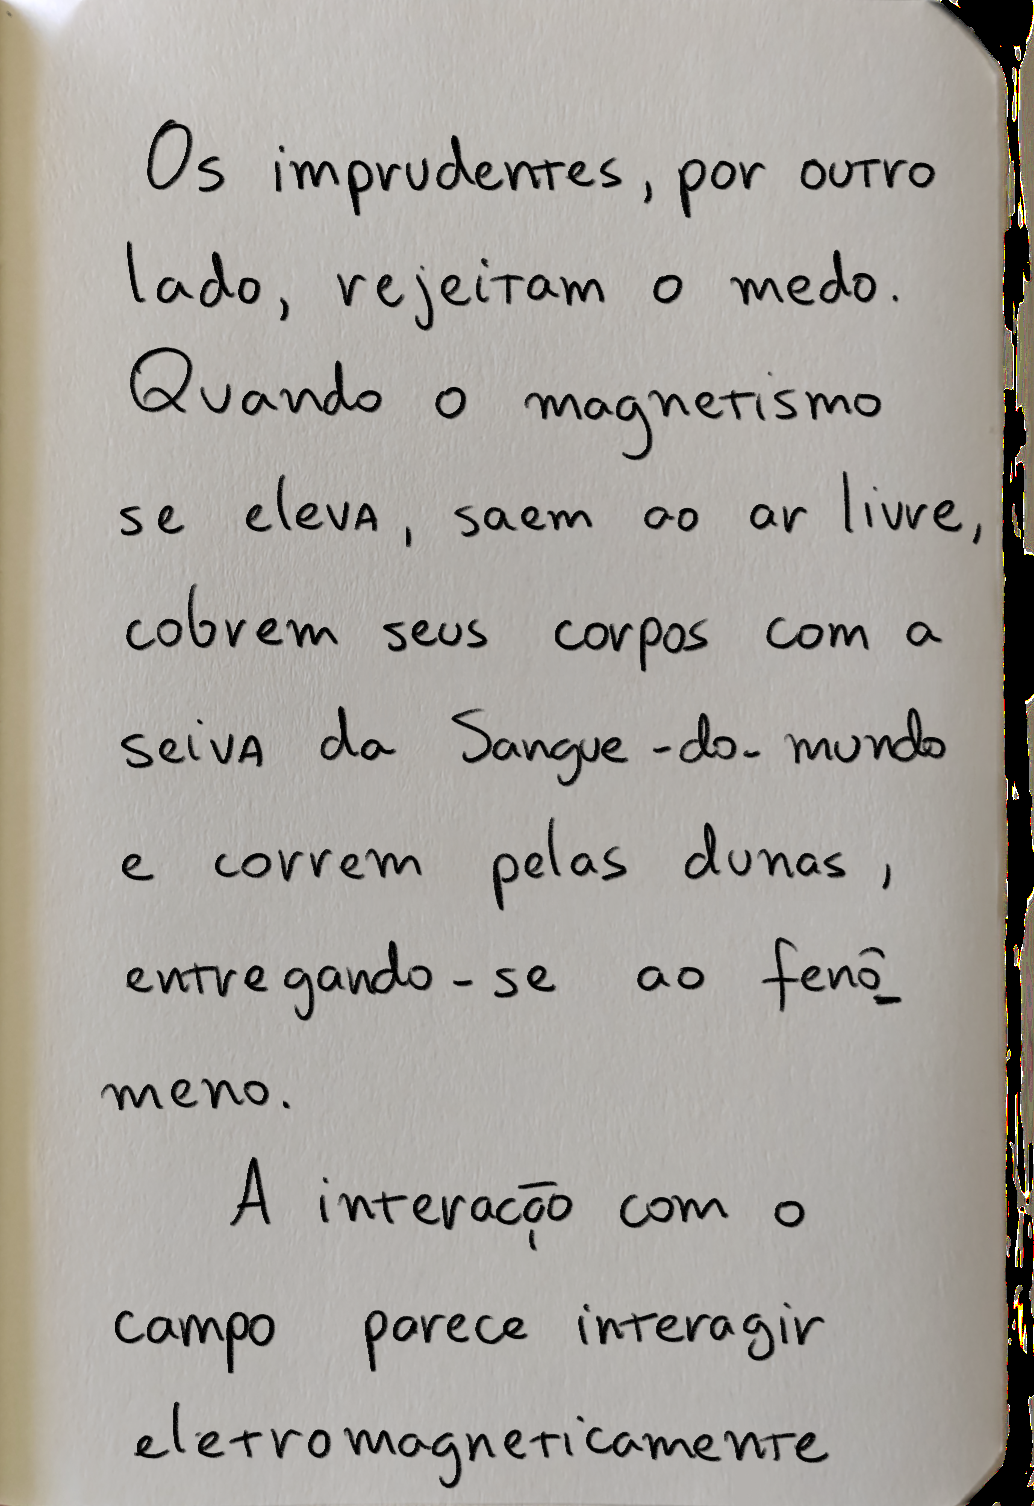 Os imprudentes, por outro
lado, rejeitam o medo.
Quando o magnetismo
se eleva, saem ao ar livre,
cobrem seus corpos com a
seiva da Sangue-do-mundo
e correm pelas dunas,
entregando-se ao fenô-
meno.
A interação com o
campo parece interagir
eletromagneticamente